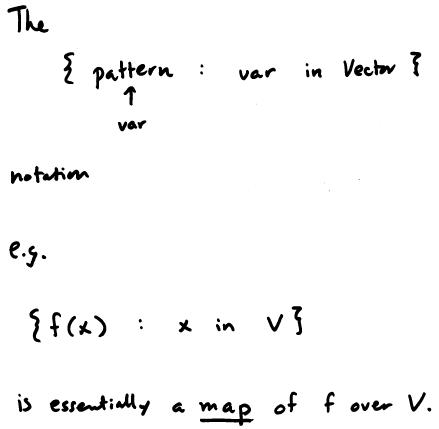 The
{ pattern : var in Vector }
↑
var
notation
e.g.
{f(x) : x in V}
is essentially a map of f over V.